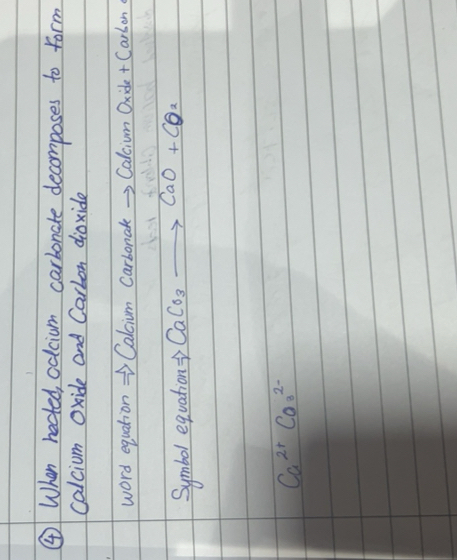 ④ When heated, calcium carbonate decomposes to form
Calcium Oxide and Carbon dioxide
word equation ⇒ Calcium Carbonate → Calcium Oxide + Carbon
Symbol equation ⇒ CaCo₃ → CaO + CO₂
Ca²⁺ Co₃²⁻